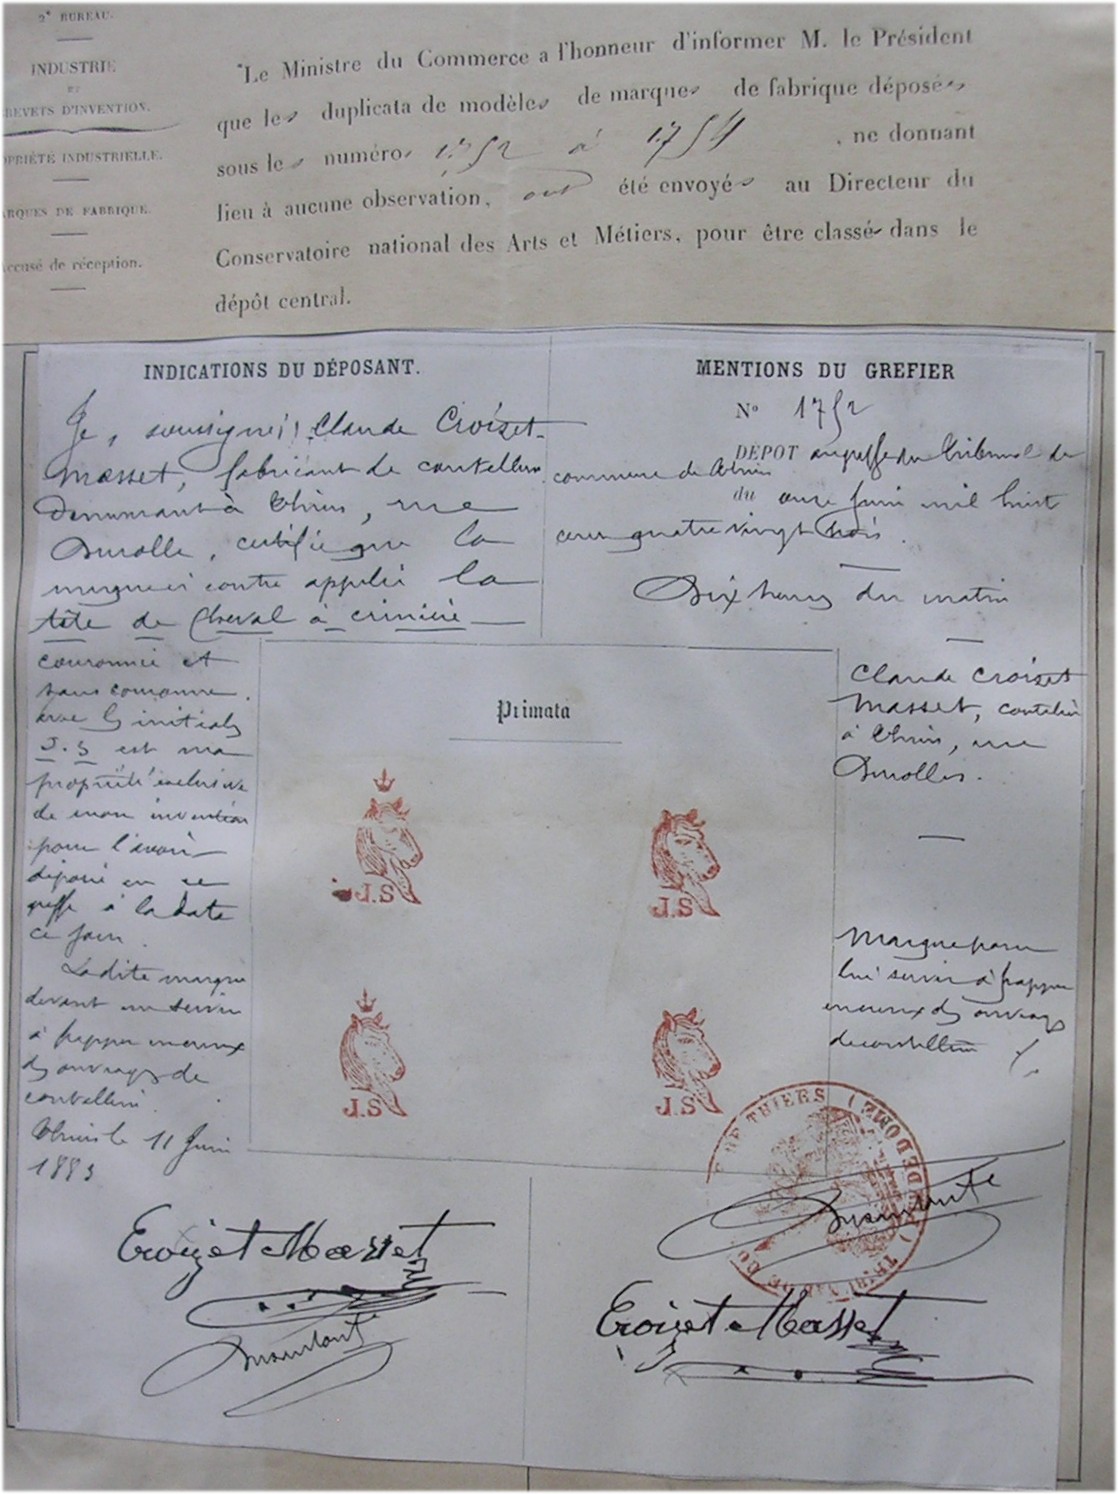 2e BUREAU.
INDUSTRIE
ET
BREVETS D'INVENTION.
OPRIÉTÉ INDUSTRIELLE.
ARQUES DE FABRIQUE.
ccusé de réception.
Le Ministre du Commerce a l'honneur d'informer M. le Président
que les duplicata de modèles de marques de fabrique déposés,
sous les numéros 1752 à 1754, ne donnant
lieu à aucune observation, ont été envoyés au Directeur du
Conservatoire national des Arts et Métiers, pour être classés dans le
dépôt central.
INDICATIONS DU DÉPOSANT.
Je, soussigné, Claude Croizet-
Masset, fabricant de coutellerie
Demeurant à Thiers, rue
Durolle, certifie que la
marque ci contre appelée la
tête de Cheval à crinière
couronnée et
sans couronne,
avec les initiales
J.S est ma
propriété exclusive
de mon invention
pour l'avoir
déposé en ce
greffe à la date
ce jour.
Ladite marque
devant me servir
à frapper mes
des ouvrages de
coutellerie.
Thiers le 11 Juin
1883
MENTIONS DU GREFIER
No 1752
DÉPOT au greffe du tribunal de
commerce de Thiers
du onze Juin mil huit
cent quatre vingt trois.
Dix heures du matin
Claude Croizet
Masset, coutelier
à Thiers, rue
Durolle.
Marque pour
lui servir à frapper
des ouvrages
de coutellerie
Primata
J.S
J.S
J.S
J.S
DE THIERS (
DE DOME)
TRIBUNAL DE CO
Croizet Masset
Croizet Masset